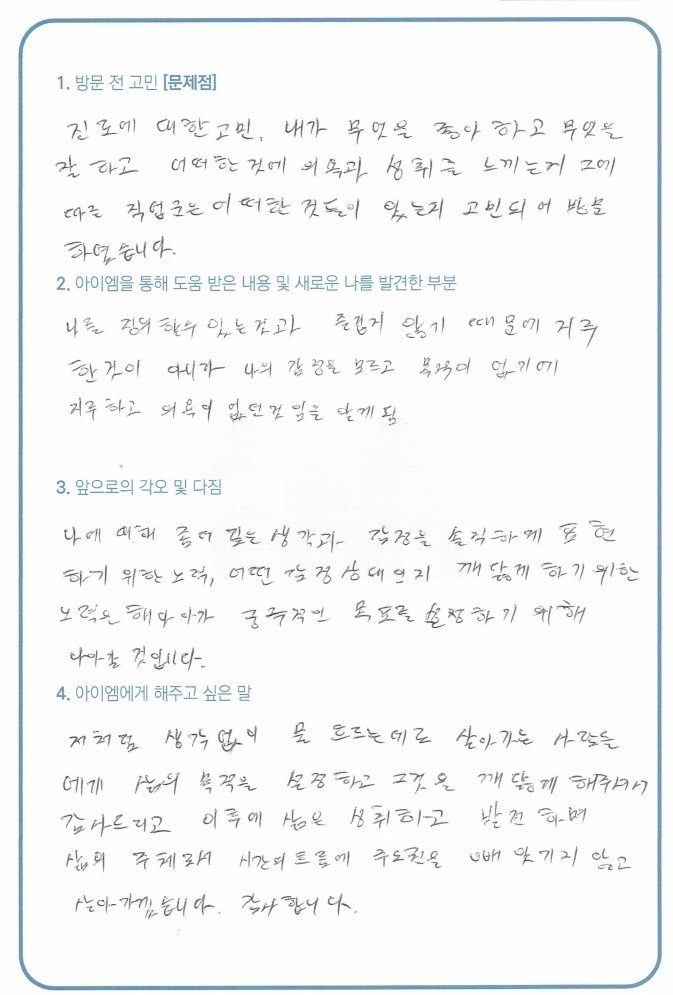 1. 방문 전 고민 [문제점]
진로에 대한 고민, 내가 무엇을 좋아 하고 무엇을
잘 하고 어떠한 것에 의욕과 성취를 느끼는지 그에
따른 직업군은 어떠한 것들이 있는지 고민되어 방문
하였습니다.
2. 아이엠을 통해 도움 받은 내용 및 새로운 나를 발견한 부분
나를 정의 할수 있는 것과 즐겁지 않기 때문에 지루
한것이 아니라 나의 감정을 모르고 목적이 없기에
지루하고 의욕이 없던것 임을 알게 됨
3. 앞으로의 각오 및 다짐
나에 대해 좀더 깊은 생각과 감정을 솔직하게 표현
하기 위한 노력, 어떤 감정상태인지 깨닳게 하기 위한
노력은 해나아가 궁극적인 목표를 설정하기 위해
나아갈 것입니다.
4. 아이엠에게 해주고 싶은 말
저처럼 생각없이 물 흐르는데로 살아가는 사람들
에게 삶의 목적을 설정하고 그것을 깨닳게 해주셔서
감사드리고 이후에 삶은 성취하고 발전 하며
삶의 주체로서 시간의 흐름에 주도권을 빼앗기지 않고
살아가겠습니다. 감사합니다.